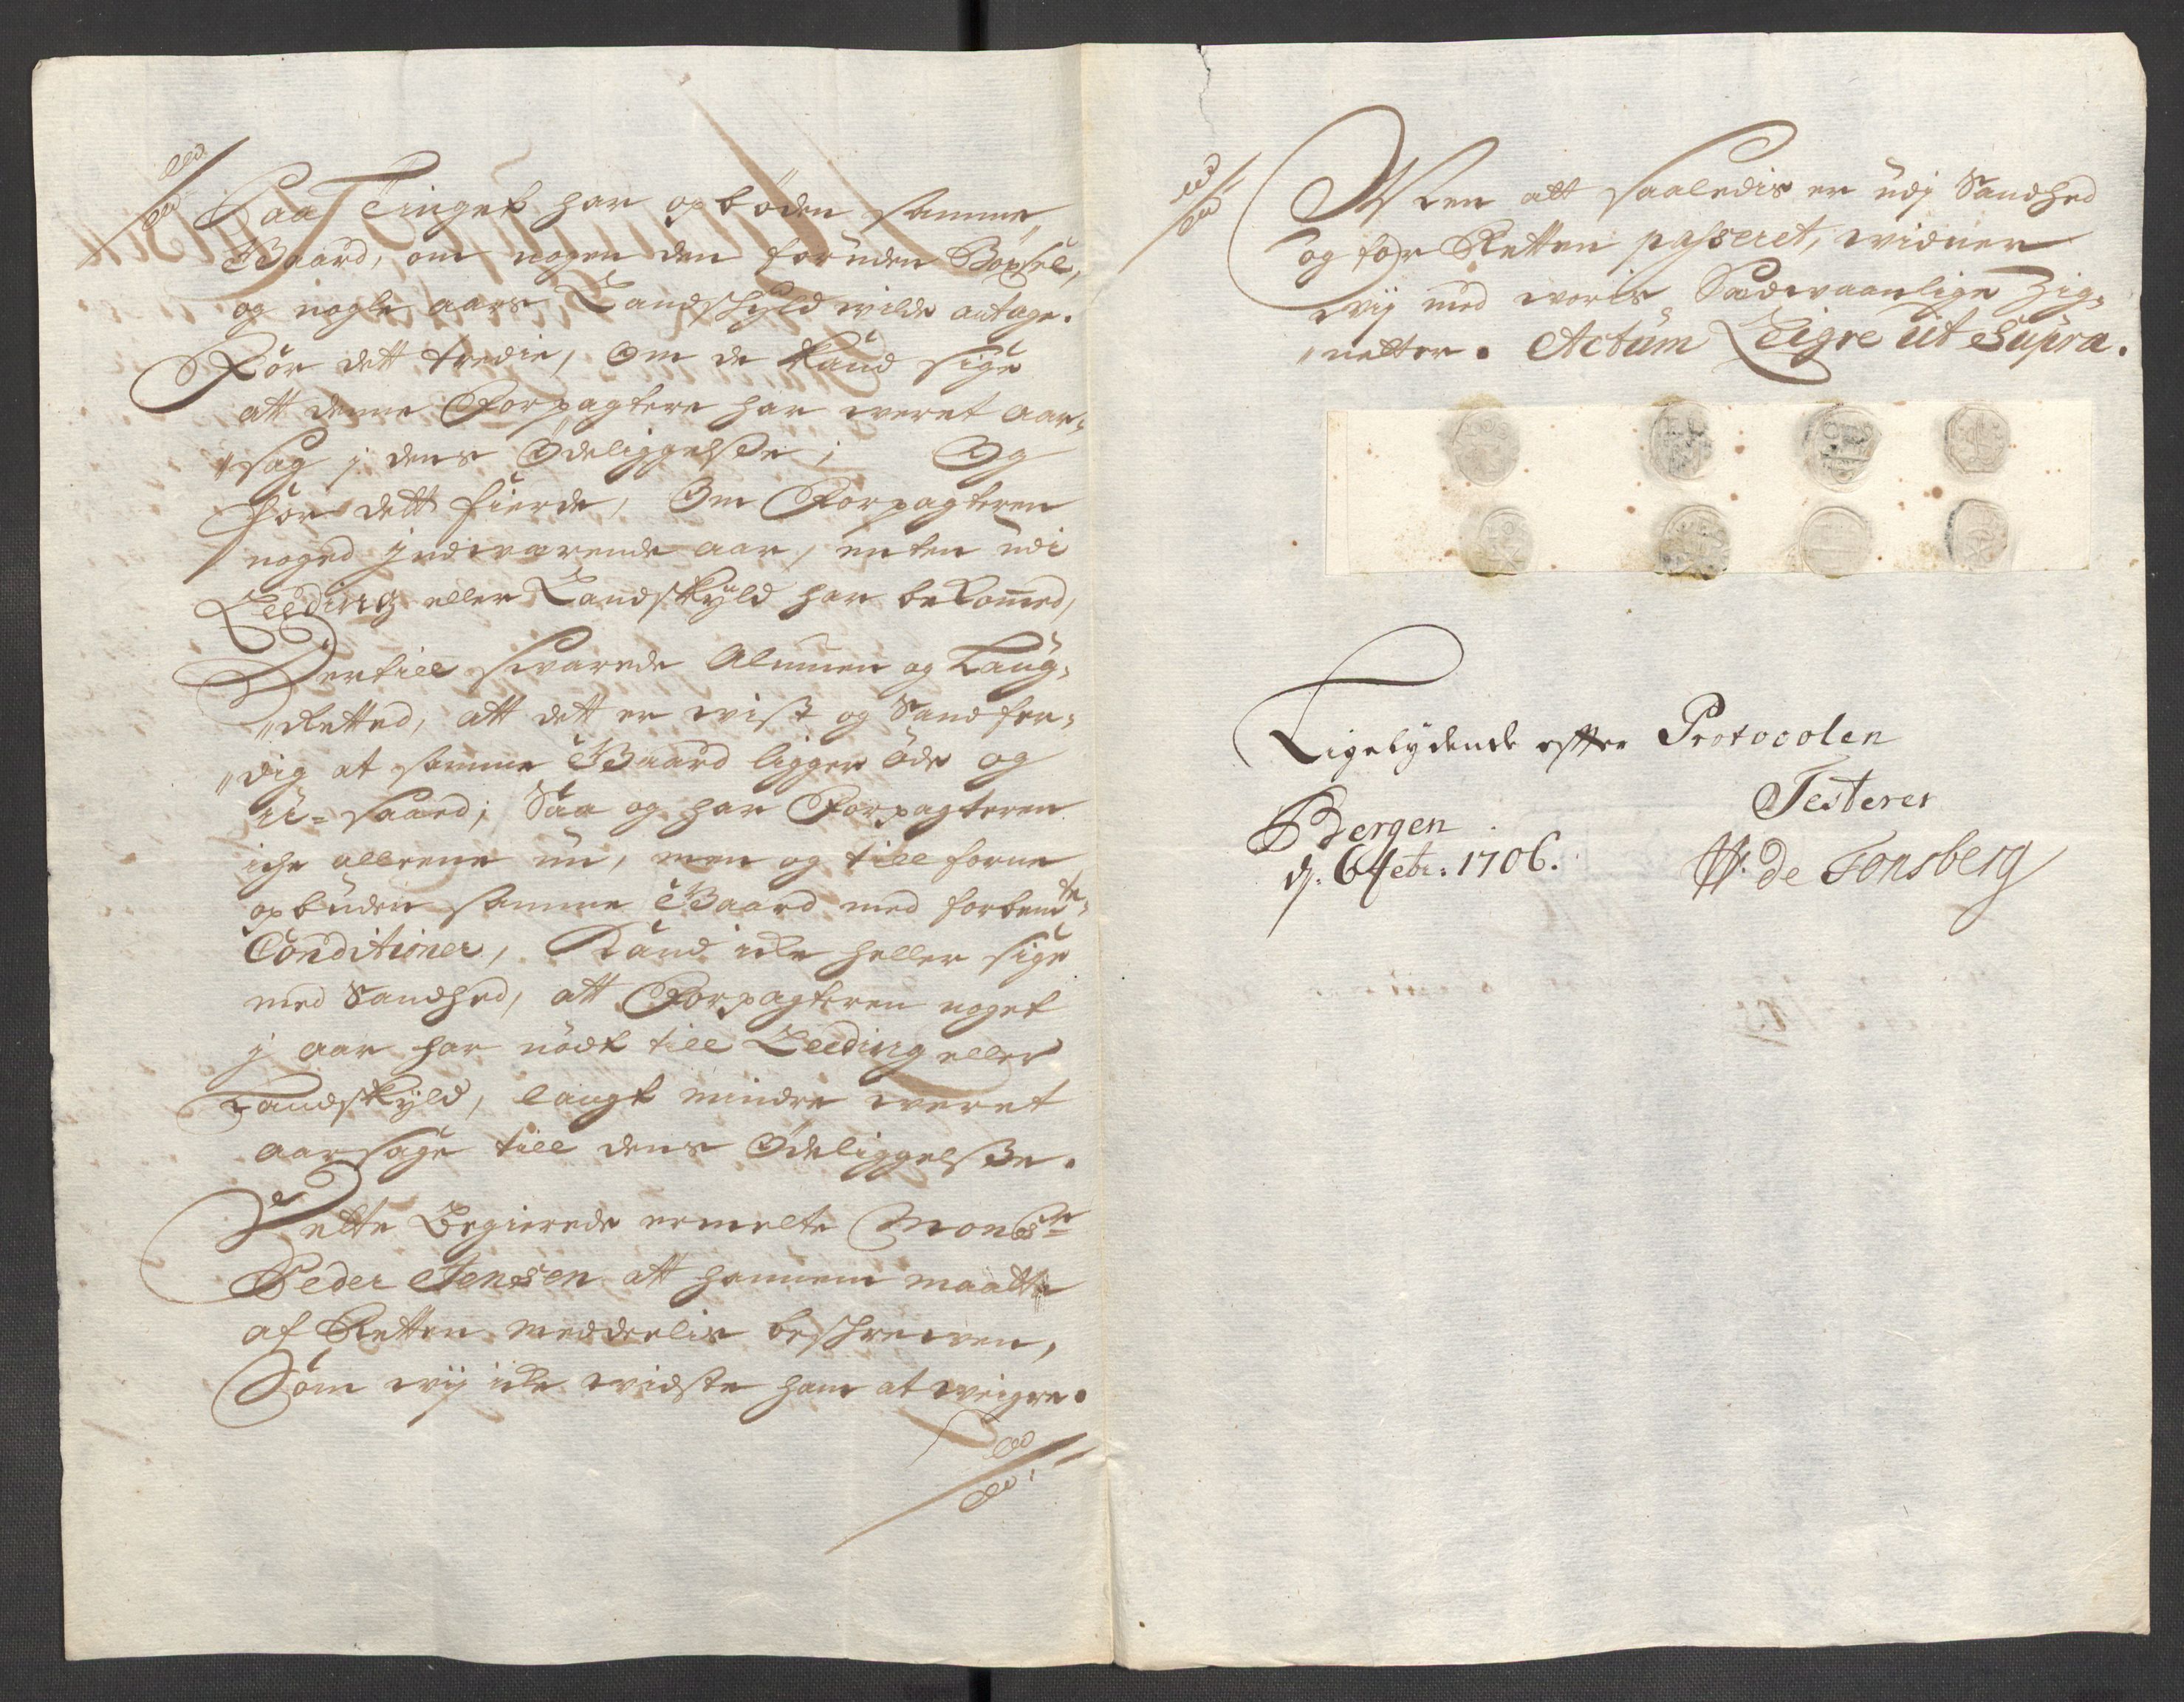 Paa Tinget har opböden samme
Gaard, om nogen den foruden Böxsel,
og nogle aars Landskyld wilde antage.
For dett tredie, Om de kand sige
att denne Forpagtere har weret aar-
sag j dens Ödeliggelsse; Og
for dett fierde, Om Forpagteren
noged jndwærende aar, enten udi
Leeding eller Landskyld har bekommed,
Dertill swarede Almuen og Laug-
Retted, att dett er wist og Sandfer-
dig at samme Gaard ligger öde og
u-saaed; Saa og har Forpagteren
iche alleene nu, men og till forne
opbuden samme Gaard med forbemte
Conditioner, Kand icke heller sige
med Sandhed, att Forpagteren noget
j aar har nödt till Leeding eller
Landskyld, langt mindre weret
aarsage till dens Ödeliggelsse.
Dette Begierede ermelte Monsr
Peder Jensen att hannem maatte
af Retten meddeelis beskrewen,
Som wij icke widste ham at weigre.
Men att saaledis er udj Sandhed
og for Retten passeret, widner
wij med woris Sædwaanlige Zig-
netter. Actum Leigre ut Supra.
Ligelydende efter Protocolen
Testerer
Bergen
d. 6 1706.
W: de Tonsberg